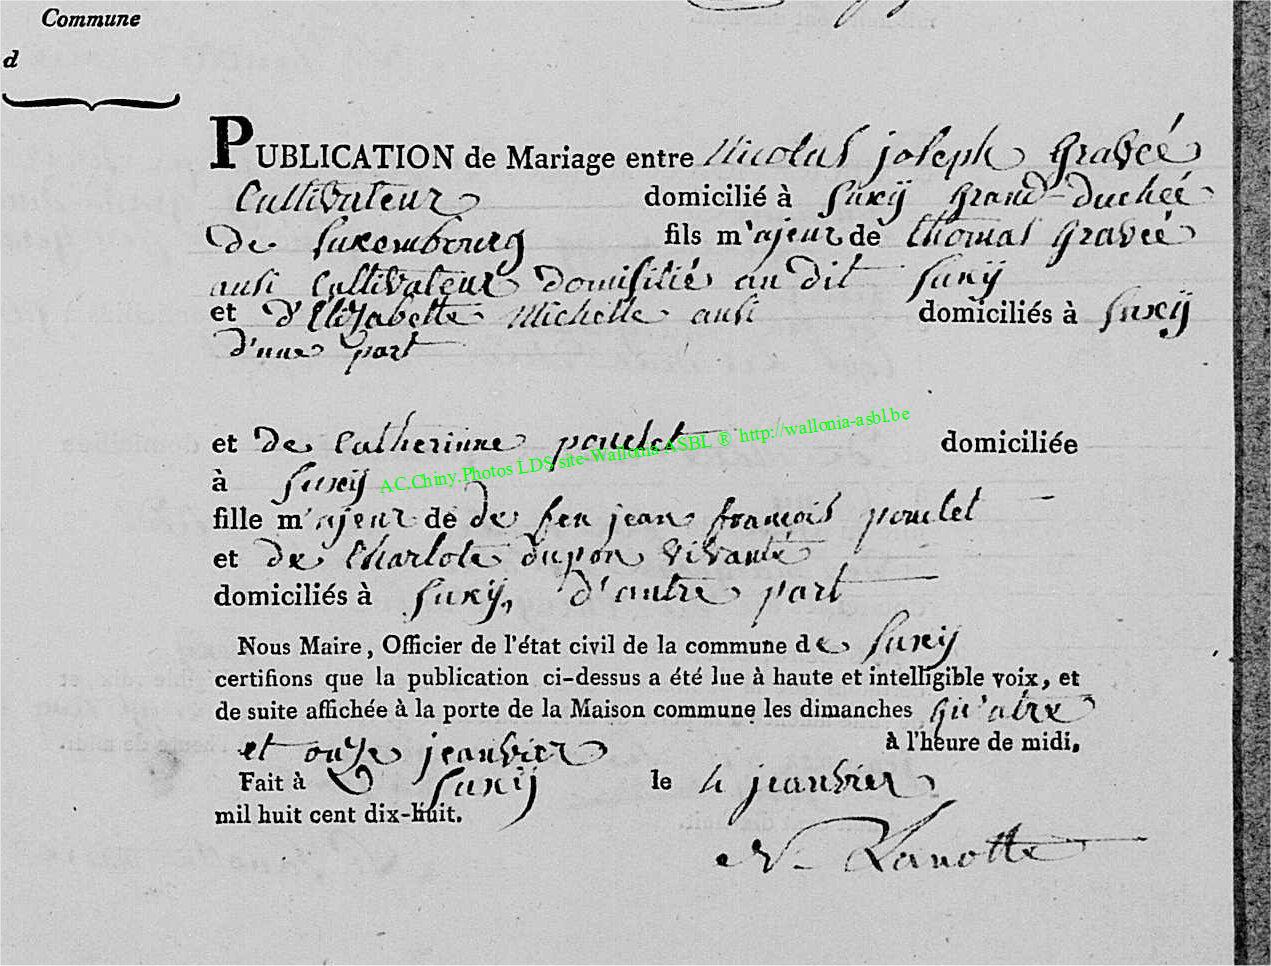 Commune
d
PUBLICATION de Mariage entre Nicolas joseph Gravéé
Cultivateur domicilié à Suxÿ grand-duchéé
de Luxembourg fils m'ajeur de thomas Gravéé
ausi Cultivateur domisilié au dit Suxÿ
et d'Elizabette Michelle ausi domiciliés à Suxÿ
d'une part
et de Catherinne poncelet domiciliée
à Suxÿ
AC.Chiny.Photos LDS site-Wallonia ASBL ® http://wallonia-asbl.be
fille m'ajeur de de feu jean françois poncelet
et de Charlote dupon vivante
domiciliés à Suxÿ, d'autre part
Nous Maire, Officier de l'état civil de la commune de Suxÿ
certifions que la publication ci-dessus a été lue à haute et intelligible voix, et
de suite affichée à la porte de la Maison commune les dimanches qu'atre
et onze jeanvier à l'heure de midi.
Fait à Suxÿ le 4 jeanvier
mil huit cent dix-huit.
N. Lanotte